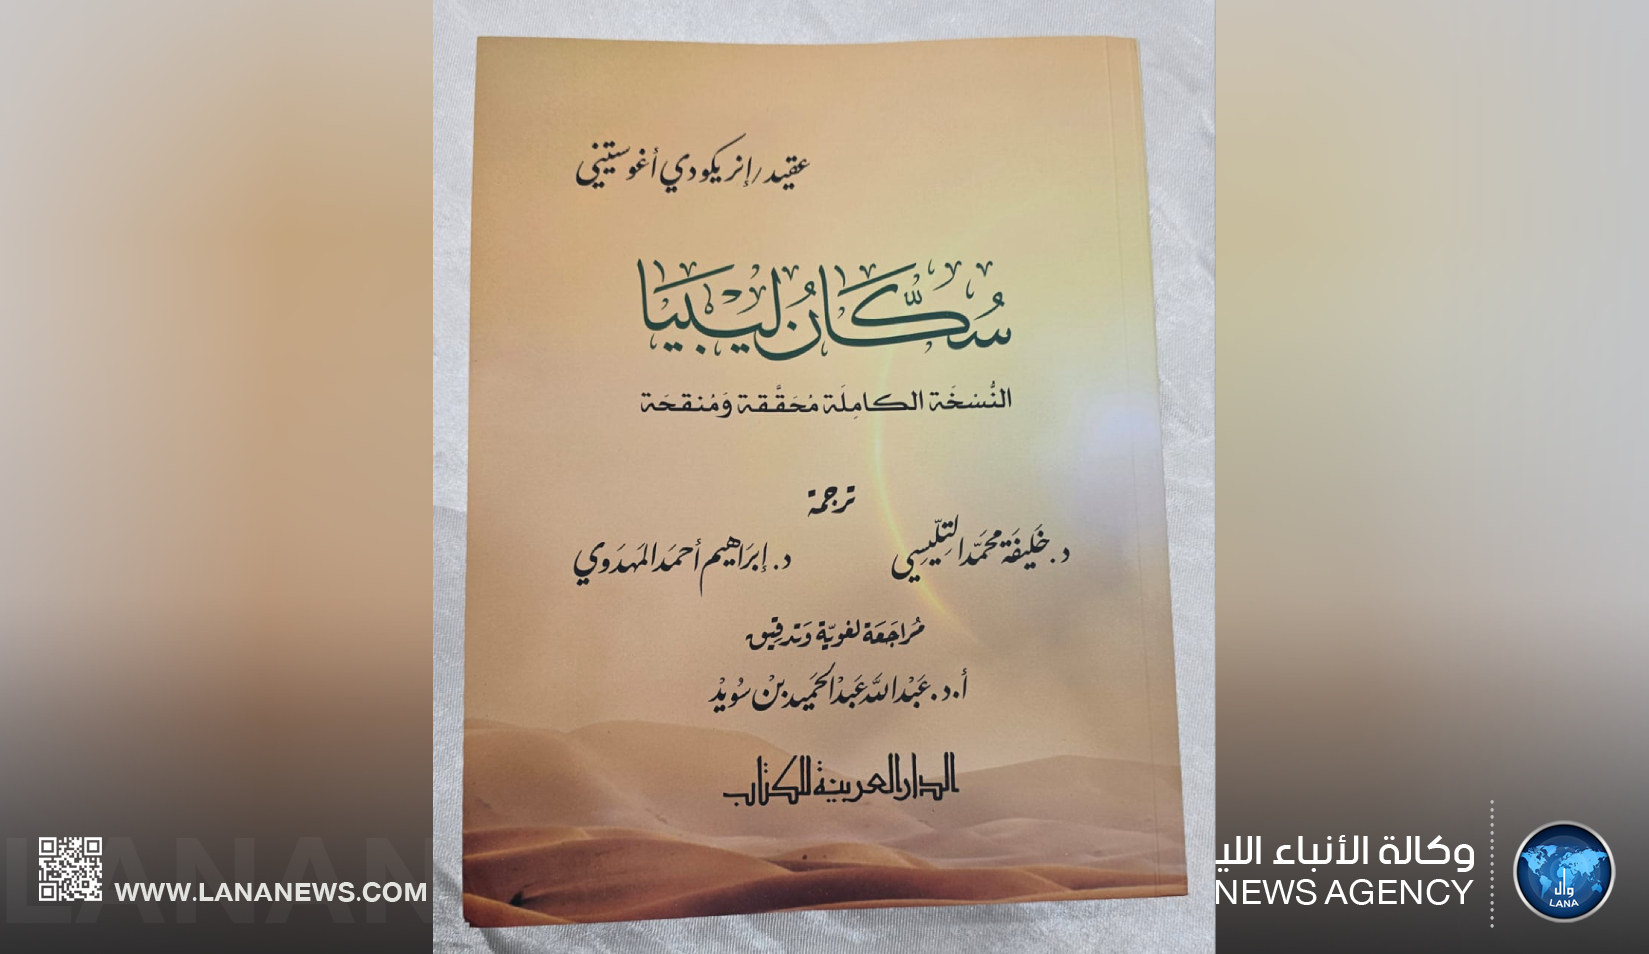 عقيد/إنريكودي أغوستيني
سُكَّانُ ليْبيَا
النُّسْخَة الكامِلَة مُحَقَّقة وَمُنقحَة
ترجمة
د. خَليفَة محمّد التِلّيسِي
د. إبرَاهيم أحمَد المَهدَوي
مُرَاجَعَة لغويّة وَتدقِيق
أ.د. عَبْد اللّه عَبْد الحَميد بنْ سُويْد
الدار العربية للكتاب
وكالة الأنباء اللي
NEWS AGENCY
WWW.LANANEWS.COM
LANAN
وال
LANA